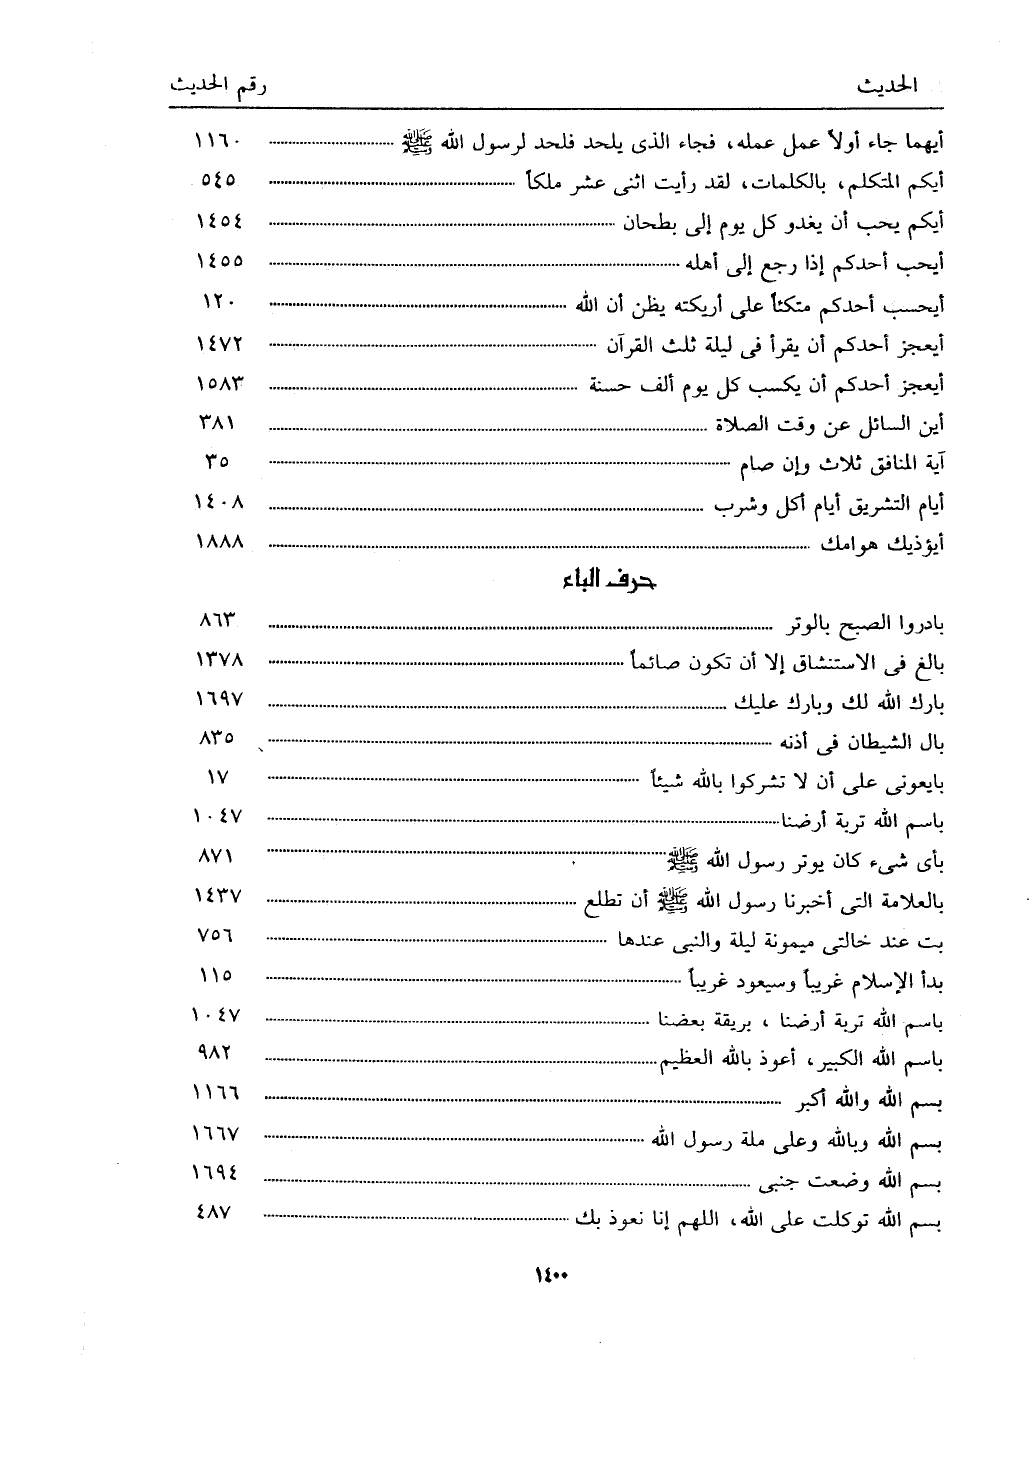 الحديث رقم الحديث
أيهما جاء أولاً عمل عمله، فجاء الذى يلحد فلحد لرسول الله ﷺ ١١٦٠
أيكم المتكلم، بالكلمات، لقد رأيت اثنى عشر ملكاً ٥٤٥
أيكم يحب أن يغدو كل يوم إلى بطحان ١٤٥٤
أيحب أحدكم إذا رجع إلى أهله ١٤٥٥
أيحسب أحدكم متكئاً على أريكته يظن أن الله ١٢٠
أيعجز أحدكم أن يقرأ فى ليلة ثلث القرآن ١٤٧٢
أيعجز أحدكم أن يكسب كل يوم ألف حسنة ١٥٨٣
أين السائل عن وقت الصلاة ٣٨١
آية المنافق ثلاث وإن صام ٣٥
أيام التشريق أيام أكل وشرب ١٤٠٨
أيؤذيك هوامك ١٨٨٨
حرف الباء
بادروا الصبح بالوتر ٨٦٣
بالغ فى الاستنشاق إلا أن تكون صائماً ١٣٧٨
بارك الله لك وبارك عليك ١٦٩٧
بال الشيطان فى أذنه ٨٣٥
بايعونى على أن لا تشركوا بالله شيئاً ١٧
باسم الله تربة أرضنا ١٠٤٧
بأى شىء كان يوتر رسول الله ﷺ ٨٧١
بالعلامة التى أخبرنا رسول الله ﷺ أن تطلع ١٤٣٧
بت عند خالتى ميمونة ليلة والنبى عندها ٧٥٦
بدأ الإسلام غريباً وسيعود غريباً ١١٥
باسم الله تربة أرضنا ، بريقة بعضنا ١٠٤٧
باسم الله الكبير، أعوذ بالله العظيم ٩٨٢
بسم الله والله أكبر ١١٦٦
بسم الله وبالله وعلى ملة رسول الله ١٦٦٧
بسم الله وضعت جنبى ١٦٩٤
بسم الله توكلت على الله، اللهم إنا نعوذ بك ٤٨٧
١٤٠٠